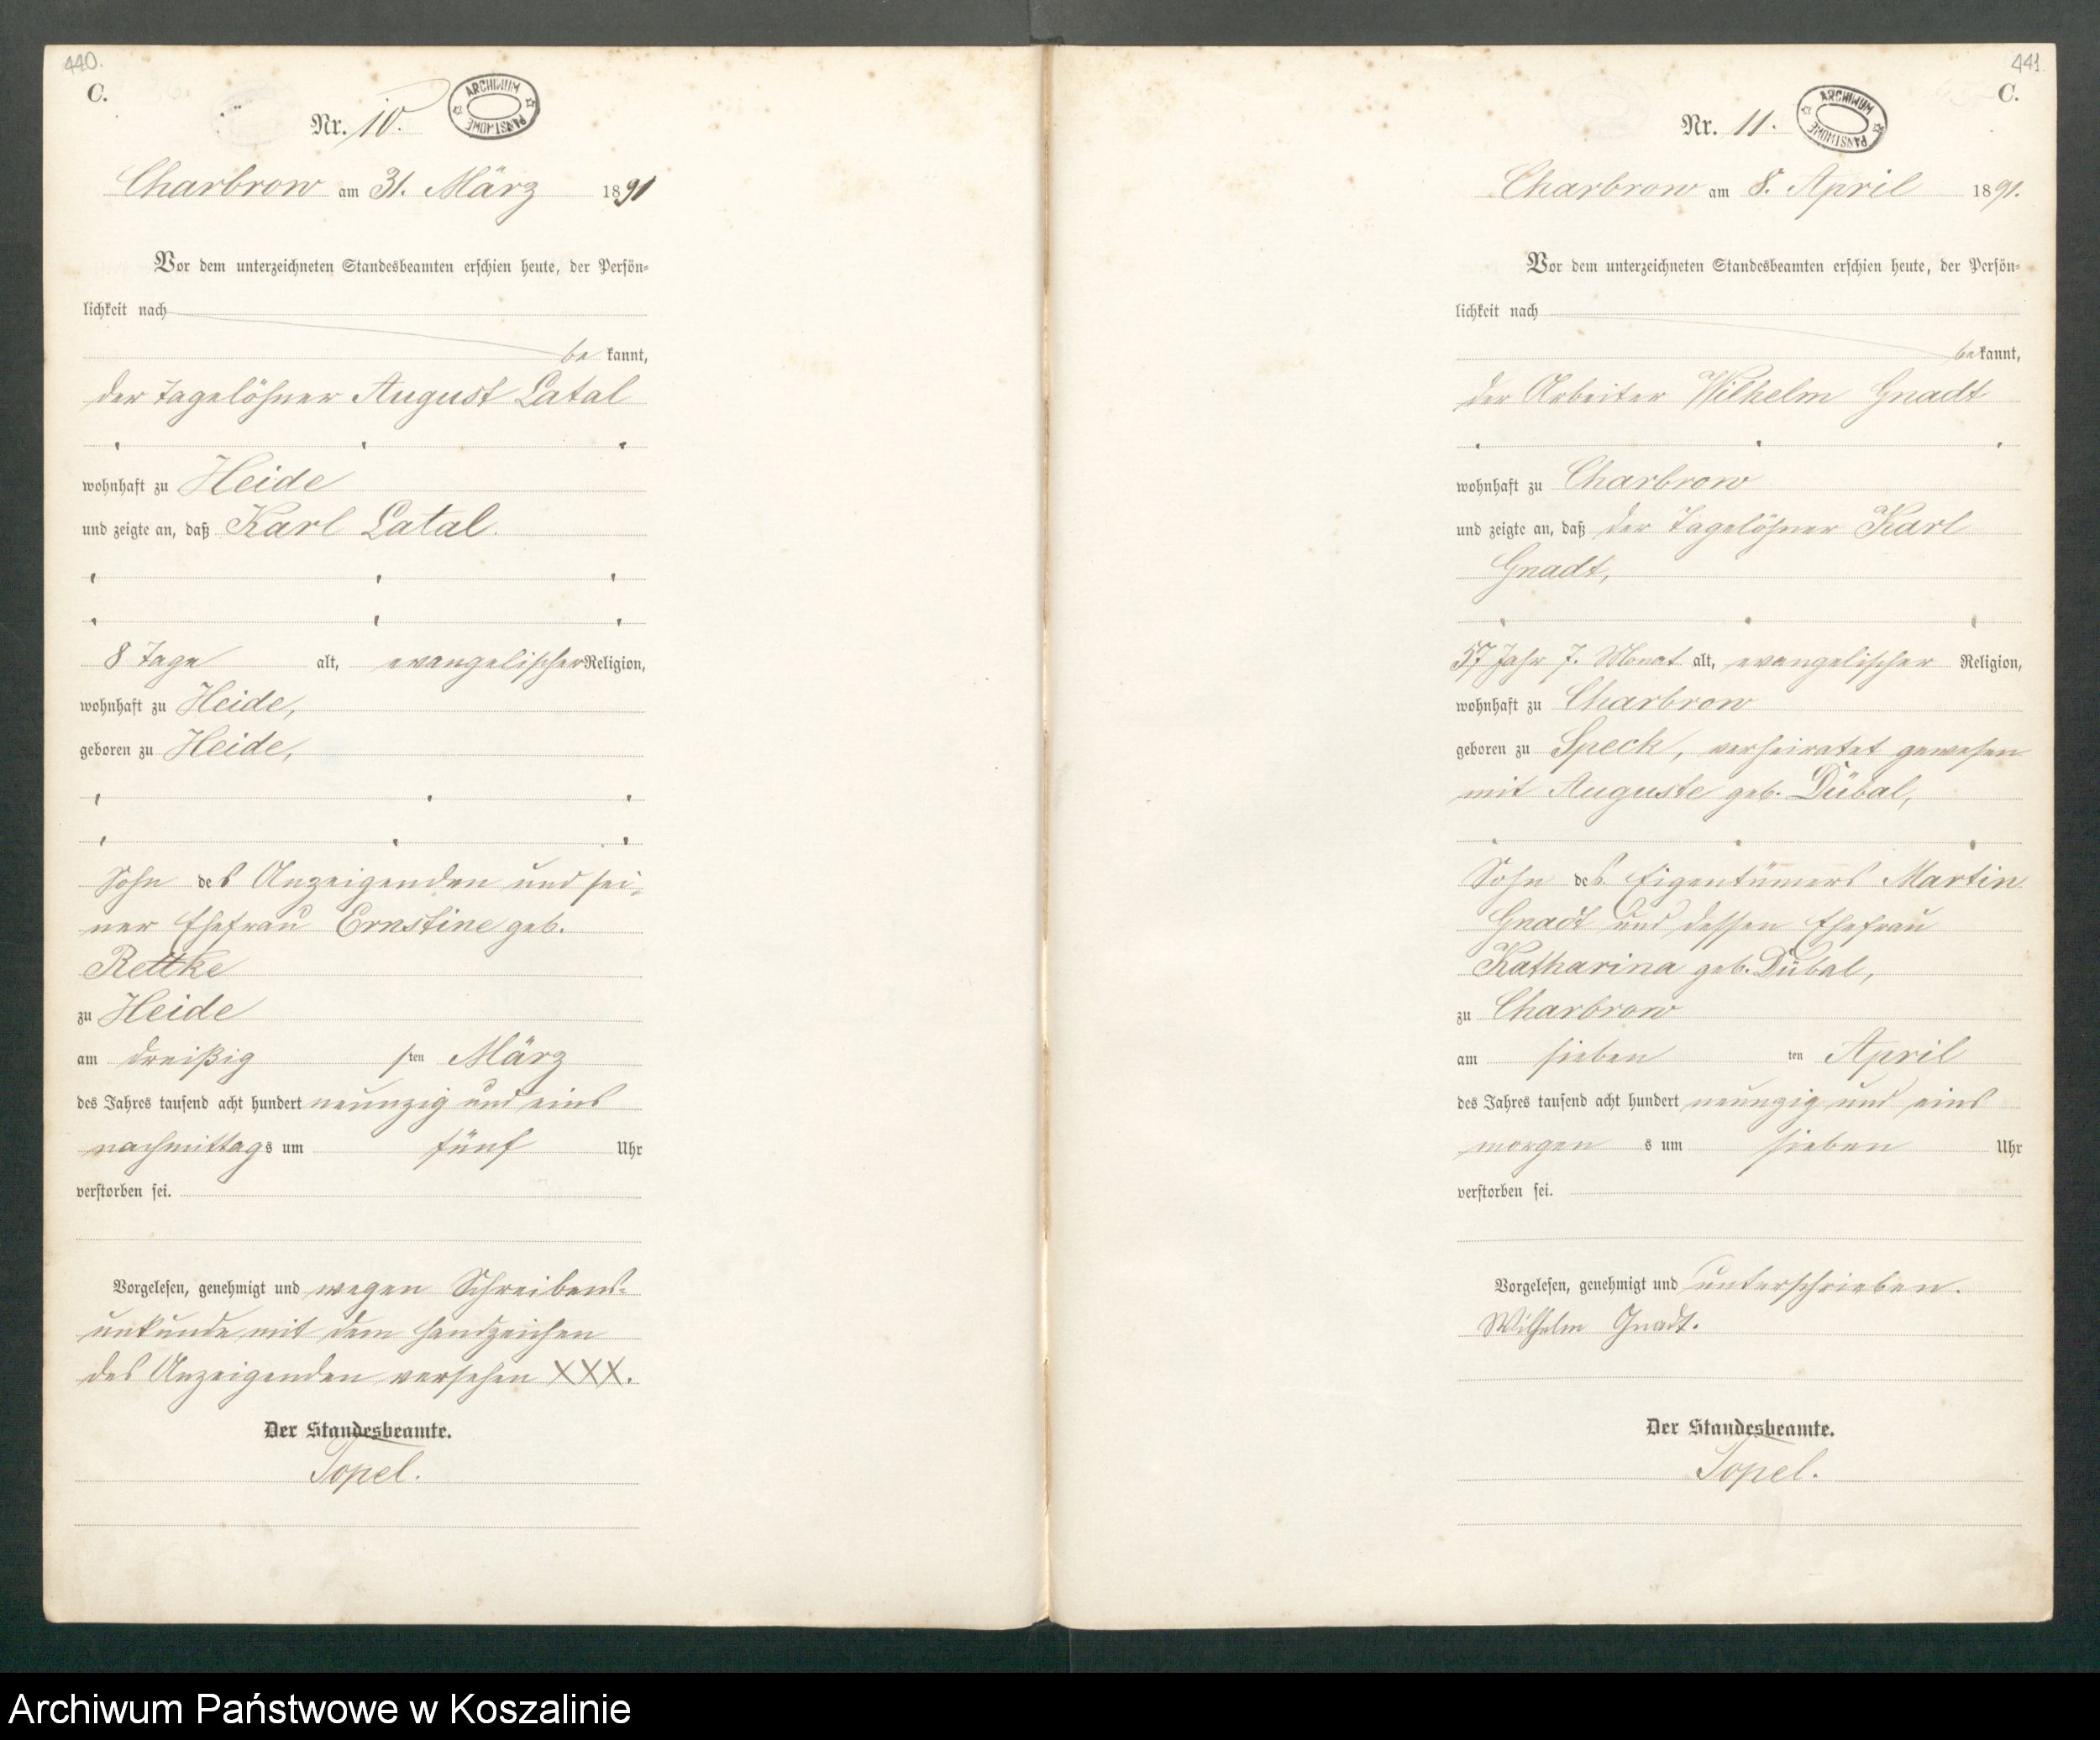 440.
C.
Nr. 10.
ARCHIWUM PAŃSTWOWE
Charbrow am 31. März 1891
Vor dem unterzeichneten Standesbeamten erschien heute, der Persön-
lichkeit nach
be kannt,
der Tagelöhner August Latal
wohnhaft zu Heide
und zeigte an, daß Karl Latal.
8 Tage alt, evangelischer Religion,
wohnhaft zu Heide,
geboren zu Heide,
Sohn des Anzeigenden und sei-
ner Ehefrau Ernstine geb.
Rettke
zu Heide
am dreißig sten März
des Jahres tausend acht hundert neunzig und eins
nachmittags um fünf Uhr
verstorben sei.
Vorgelesen, genehmigt und wegen Schreibens-
unkunde mit dem Handzeichen
des Anzeigenden versehen XXX.
Der Standesbeamte.
Topel.
441.
C.
Nr. 11.
ARCHIWUM PAŃSTWOWE
Charbrow am 8. April 1891.
Vor dem unterzeichneten Standesbeamten erschien heute, der Persön-
lichkeit nach
be kannt,
der Arbeiter Wilhelm Gnadt
wohnhaft zu Charbrow
und zeigte an, daß der Tagelöhner Karl
Gnadt,
57 Jahr 7. Monat alt, evangelischer Religion,
wohnhaft zu Charbrow
geboren zu Speck, verheiratet gewesen
mit Auguste geb. Dübal,
Sohn des Eigentümers Martin
Gnadt und dessen Ehefrau
Katharina geb. Dübal,
zu Charbrow
am sieben ten April
des Jahres tausend acht hundert neunzig und eins
morgen s um sieben Uhr
verstorben sei.
Vorgelesen, genehmigt und unterschrieben.
Wilhelm Gnadt.
Der Standesbeamte.
Topel.
Archiwum Państwowe w Koszalinie